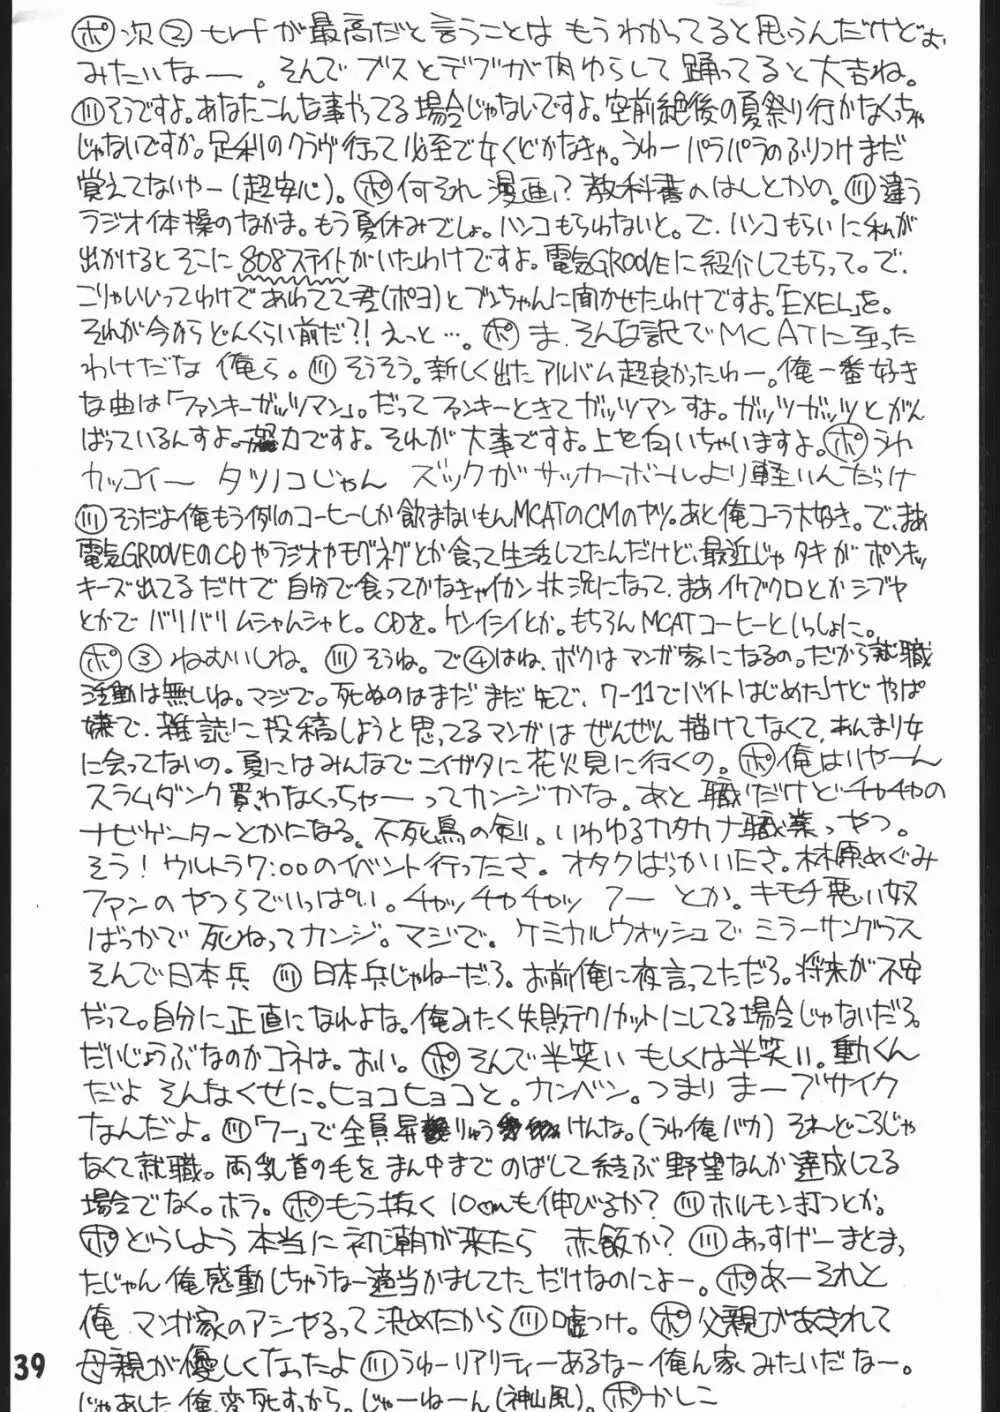 ポ 次② trfが最高だと言うことは もうわかってると思うんだけどぉ、
みたいなー。そんで ブスとデブが肉ゆらして 踊ってると大吉ね。
川 そうですよ。あなたこんな事やってる場合じゃないですよ。空前絶後の夏祭り行かなくちゃ
じゃないですか。足利のクラヴ行って必至で女くどかなきゃ。うゅー パラパラのふりつけまだ
覚えてないやー(超安心)。ポ 何それ 漫画!? 教科書のはしとかの。川 違う
ラジオ体操のなかま。もう夏休みでしょ。ハンコもらわないと。で、ハンコもらいに私が
出かけるとそこに808ステイトがいたわけですよ。電気GROOVEに紹介してもらって。で、
こりゃいいってわけであわてて君(ポヨ)とブンちゃんに聞かせたわけですよ。「EXEL」を。
それが今からどんくらい前だ?! えっと…。ポ ま、そんな訳でMCATに至った
わけだな 俺ら。川 そうそう。新しく出たアルバム超良かったわー。俺一番好き
な曲は「ファンキーガッツマン」。だってファンキーときてガッツマンすよ。ガッツガッツとがん
ばっているんすよ。努力ですよ。それが大事ですよ。上を向いちゃいますよ。ポ うわ
カッコイー タツノコじゃん ズックがサッカーボールより軽いんだっけ
川 そうだよ俺もう例のコーヒーしか飲まないもんMCATのCMのヤツ。あと俺コーラ大好き。で、まあ
電気GROOVEのCDやラジオやモグネグとか食って生活してたんだけど、最近じゃタキがポンキッ
キーズ出てるだけで自分で食ってかなきゃイカン状況になって、まあイケブクロとかシブヤ
とかでバリバリムシャムシャと。CDを。ケンイシイとか。もちろんMCATコーヒーといっしょに。
ポ ③ ねむいしね。川 そうね。で④はね、ボクはマンガ家になるの。だから就職
活動は無しね。マジで。死ぬのはまだまだ先で、ワー11でバイトはじめたけどやっぱ
嫌で、雑誌に投稿しようと思ってるマンガはぜんぜん描けてなくて、あんまり女
に会ってないの。夏にはみんなでニイガタに花火見に行くの。ポ 俺はいやーん
スラムダンク買わなくっちゃーってカンジかな。あと 職だけどチャチャの
ナビゲーターとかになる。不死鳥の剣。いわゆるカタカナ職業っやつ。
そう! ウルトラ7:00のイベント行ったさ。オタクばっかいたさ。林原めぐみ
ファンのやつらでいっぱい。チャッチャチャッ フー とか。キモチ悪い奴
ばっかで死ねってカンジ。マジで。ケミカルウォッシュでミラーサングラス
そんで日本兵 川 日本兵じゃねーだろ。お前俺に夜言ってただろ。将来が不安
だって。自分に正直になれよな。俺みたく失敗テクノカットにしてる場合じゃないだろ。
だいじょうぶなのかコネは。おい。ポ そんで半笑い もしくは半笑い。動くん
だよ そんなくせに。ヒョコヒョコと。カンベン。つまり まーブサイク
なんだよ。川 「フー」で全員昇りゅうけんな。(うわ俺バカ) それどころじゃ
なくて就職。両乳首の毛をまん中までのばして結ぶ野望なんか達成してる
場合でなく。ホラ。ポ もう抜く 10cmも伸びるか? 川 ホルモン打つとか。
ポ どうしよう 本当に初潮が来たら 赤飯か? 川 あっすげーまとまっ
たじゃん 俺感動しちゃうなー適当かましてた だけなのによー。ポ あーそれと
俺 マンガ家のアシやるって決めたから 川 嘘つけ。ポ 父親があきれて
母親が優しくなったよ 川 うゅーリアリティーあるなー俺ん家みたいだなー。
じゃあした俺、変死すっから。じゃーねーん(神山風)。ポ かしこ
39